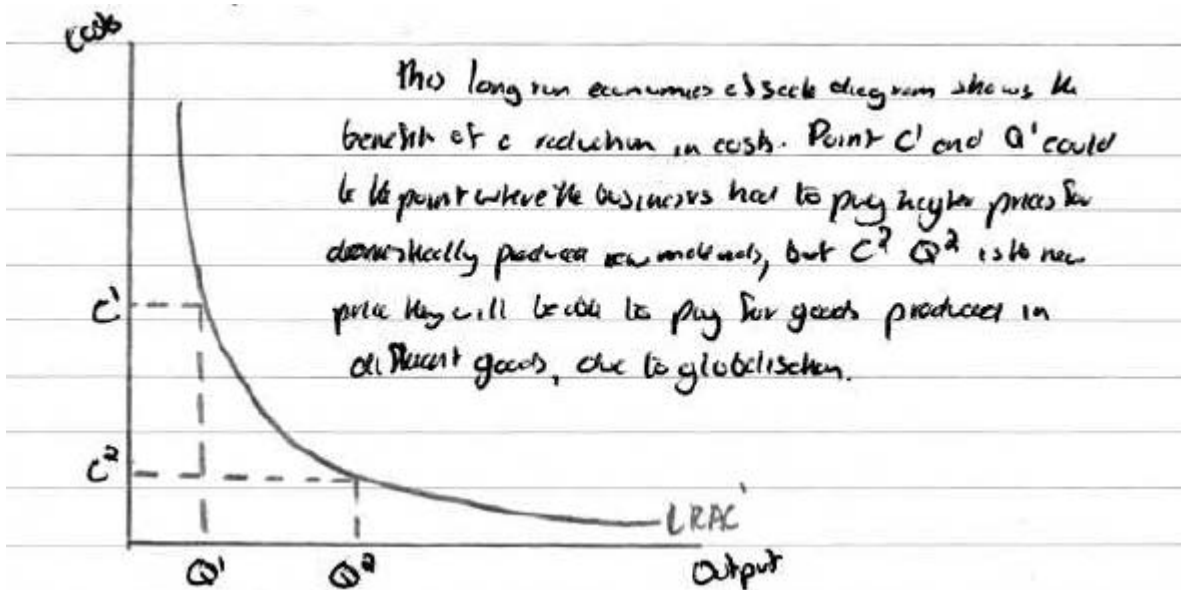 Costs
This long run economies of scale diagram shows the
benefit of a reduction in costs. Point C¹ and Q¹ could
be the point where the business had to pay higher prices for
domestically produced raw materials, but C² Q² is the new
price they will be able to pay for goods produced in
different goods, due to globalisation.
C¹
C²
LRAC¹
Q¹ Q² Output